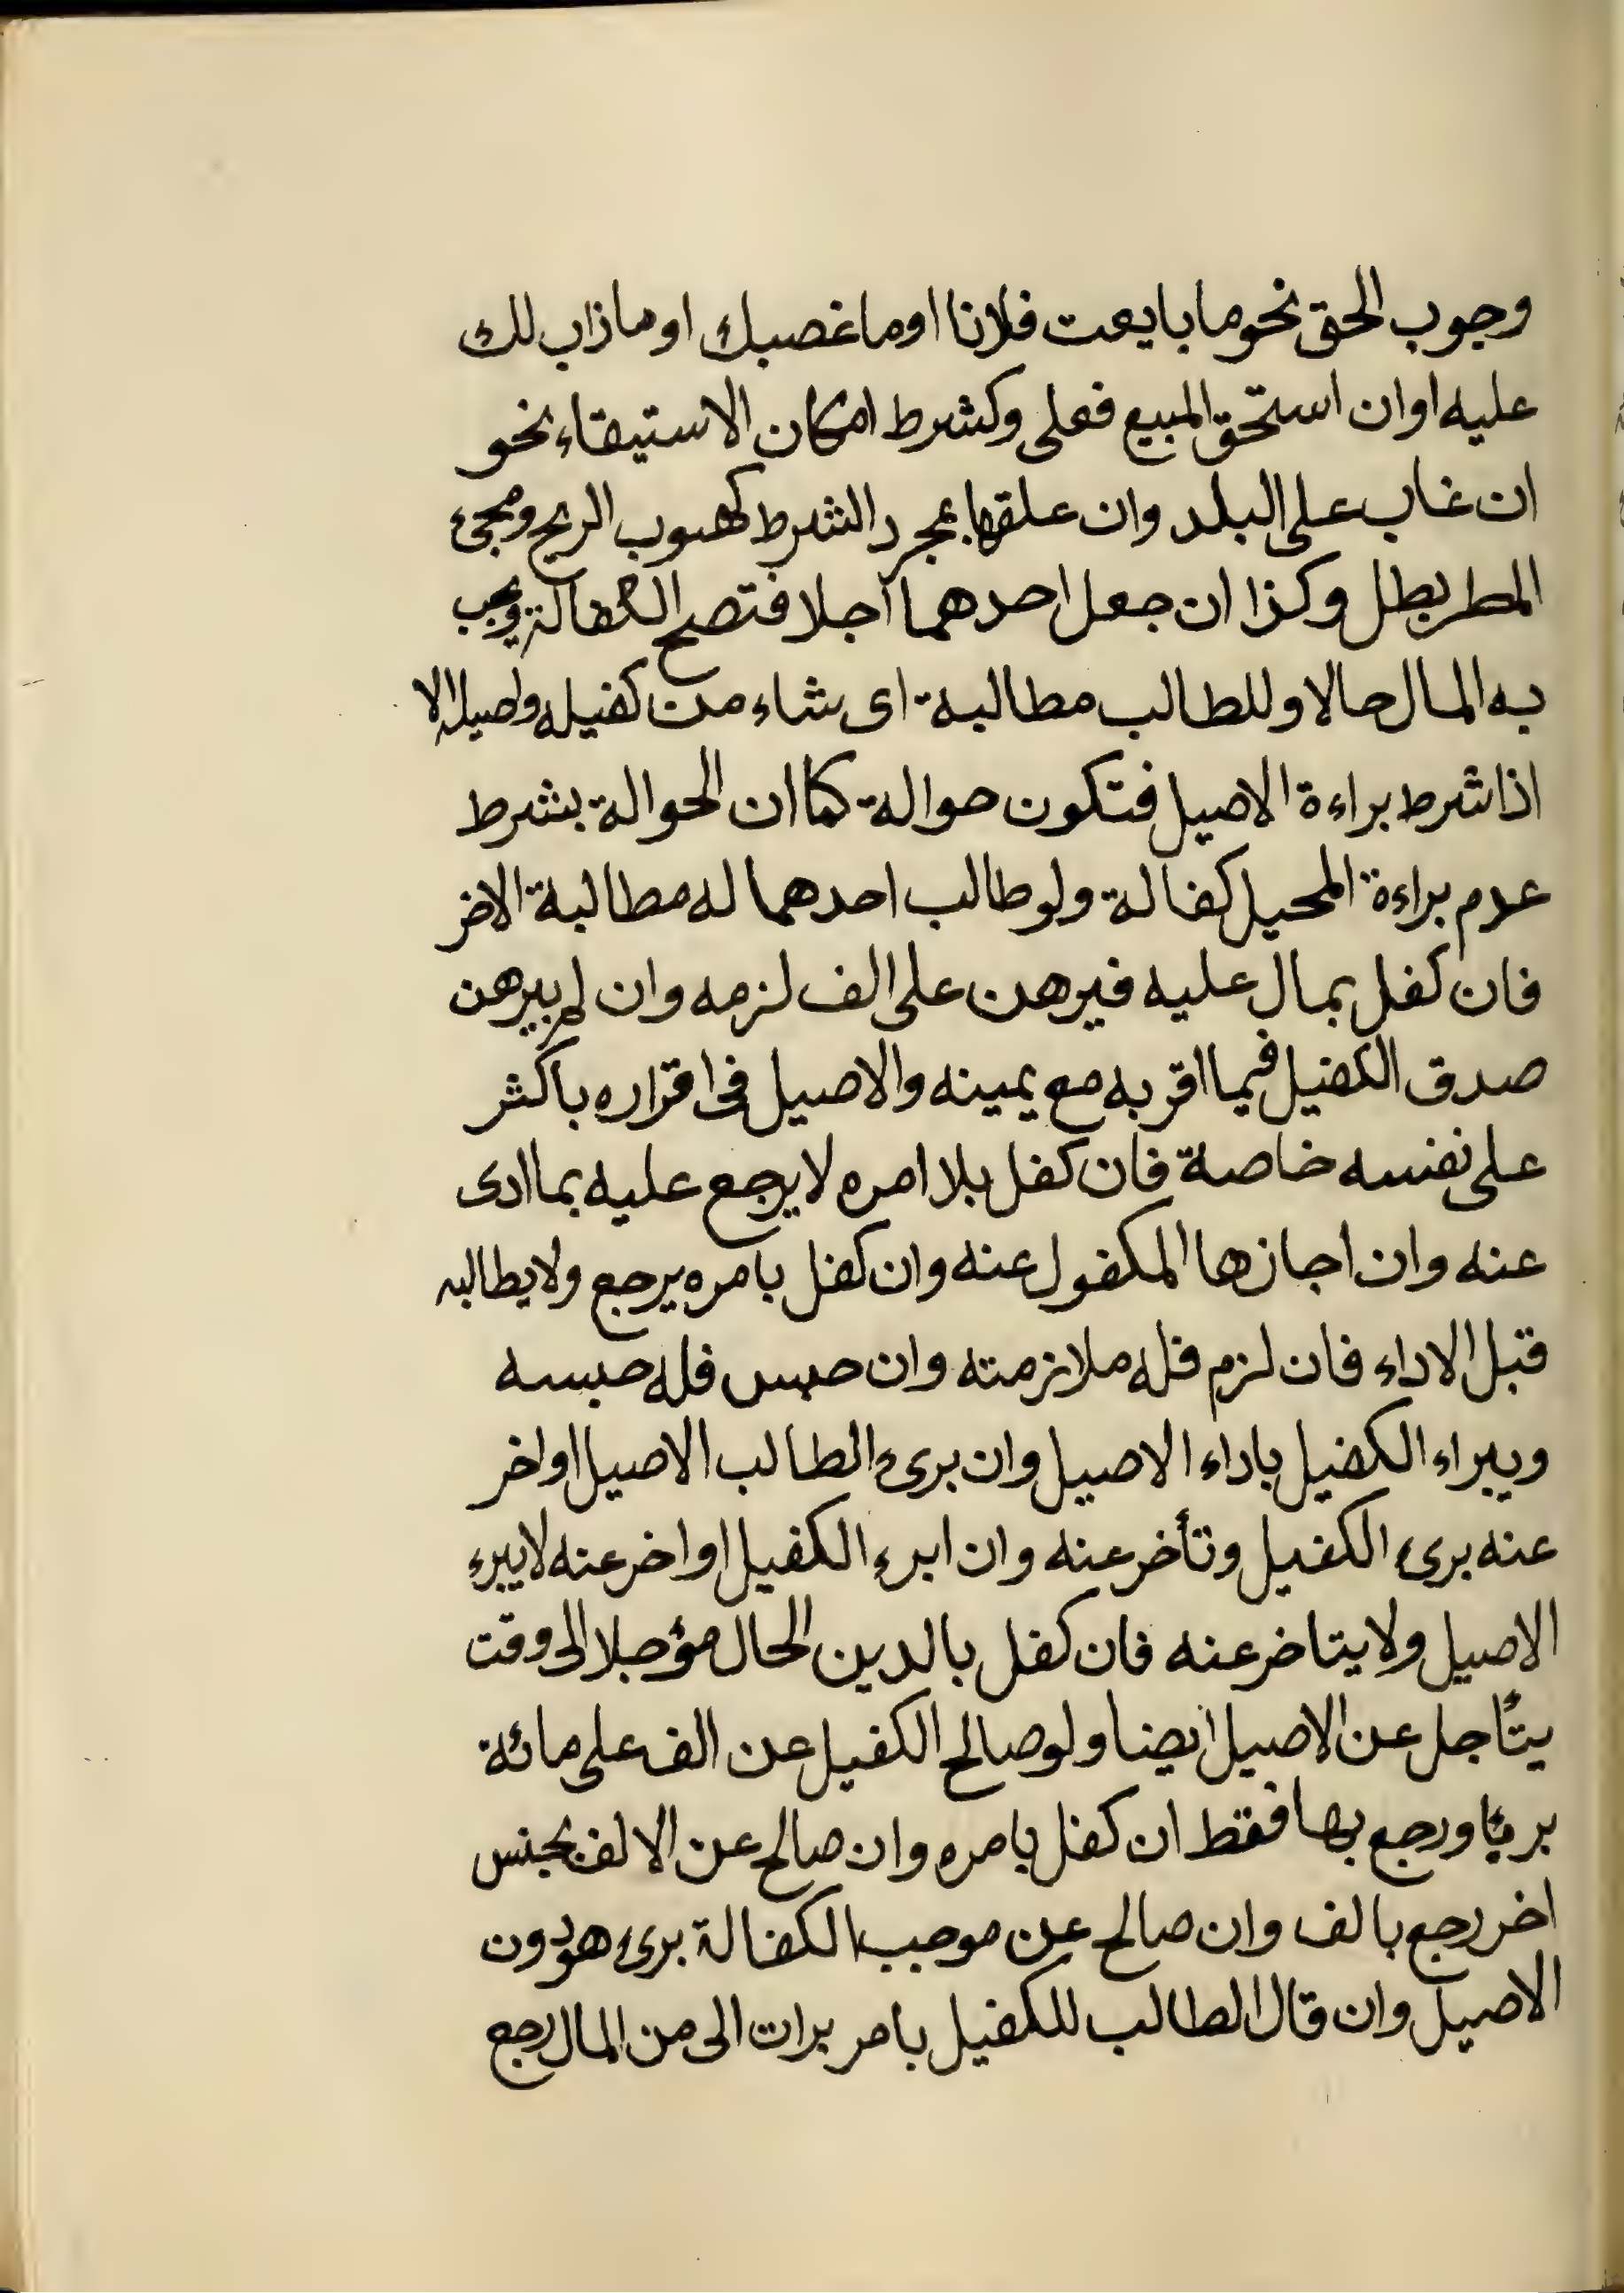 وجوب الحق نحو ما بايعت فلانا او ما غصبك او ما ذاب لك
عليه او ان استحق المبيع فعلى وكشرط امكان الاستيفاء نحو
ان غاب على البلد وان علقها بمجرد الشرط كهبوب الريح ومجئ
المطر بطل وكذا ان جعل احدهما اجلا فتصح الكفالة ويجب
به المال حالا وللطالب مطالبة اى شاء من كفيله واصيله الا
اذا شرط براءة الاصيل فتكون حوالة كما ان الحوالة بشرط
عدم براءة المحيل كفالة ولو طالب احدهما له مطالبة الاخر
فان كفل بمال عليه فبرهن على الف لزمه وان لم يبرهن
صدق الكفيل فيما اقر به مع يمينه والاصيل فى اقراره باكثر
على نفسه خاصة فان كفل بلا امره لا يرجع عليه بما ادى
عنه وان اجازها المكفول عنه وان كفل بامره يرجع ولا يطالبه
قبل الاداء فان لزم فله ملازمته وان حبس فله حبسه
ويبراء الكفيل باداء الاصيل وان برئ الطالب الاصيل او اخر
عنه برئ الكفيل وتأخر عنه وان ابرء الكفيل او اخر عنه لا يبرء
الاصيل ولا يتاخر عنه فان كفل بالدين الحال مؤجلا الى وقت
يتأجل عن الاصيل ايضا ولو صالح الكفيل عن الف على مائة
برئا ورجع بها فقط ان كفل بامره وان صالح عن الالف بجنس
اخر رجع بالف وان صالح عن موجب الكفالة برئ هو دون
الاصيل وان قال الطالب للكفيل بامر برات الى من المال رجع